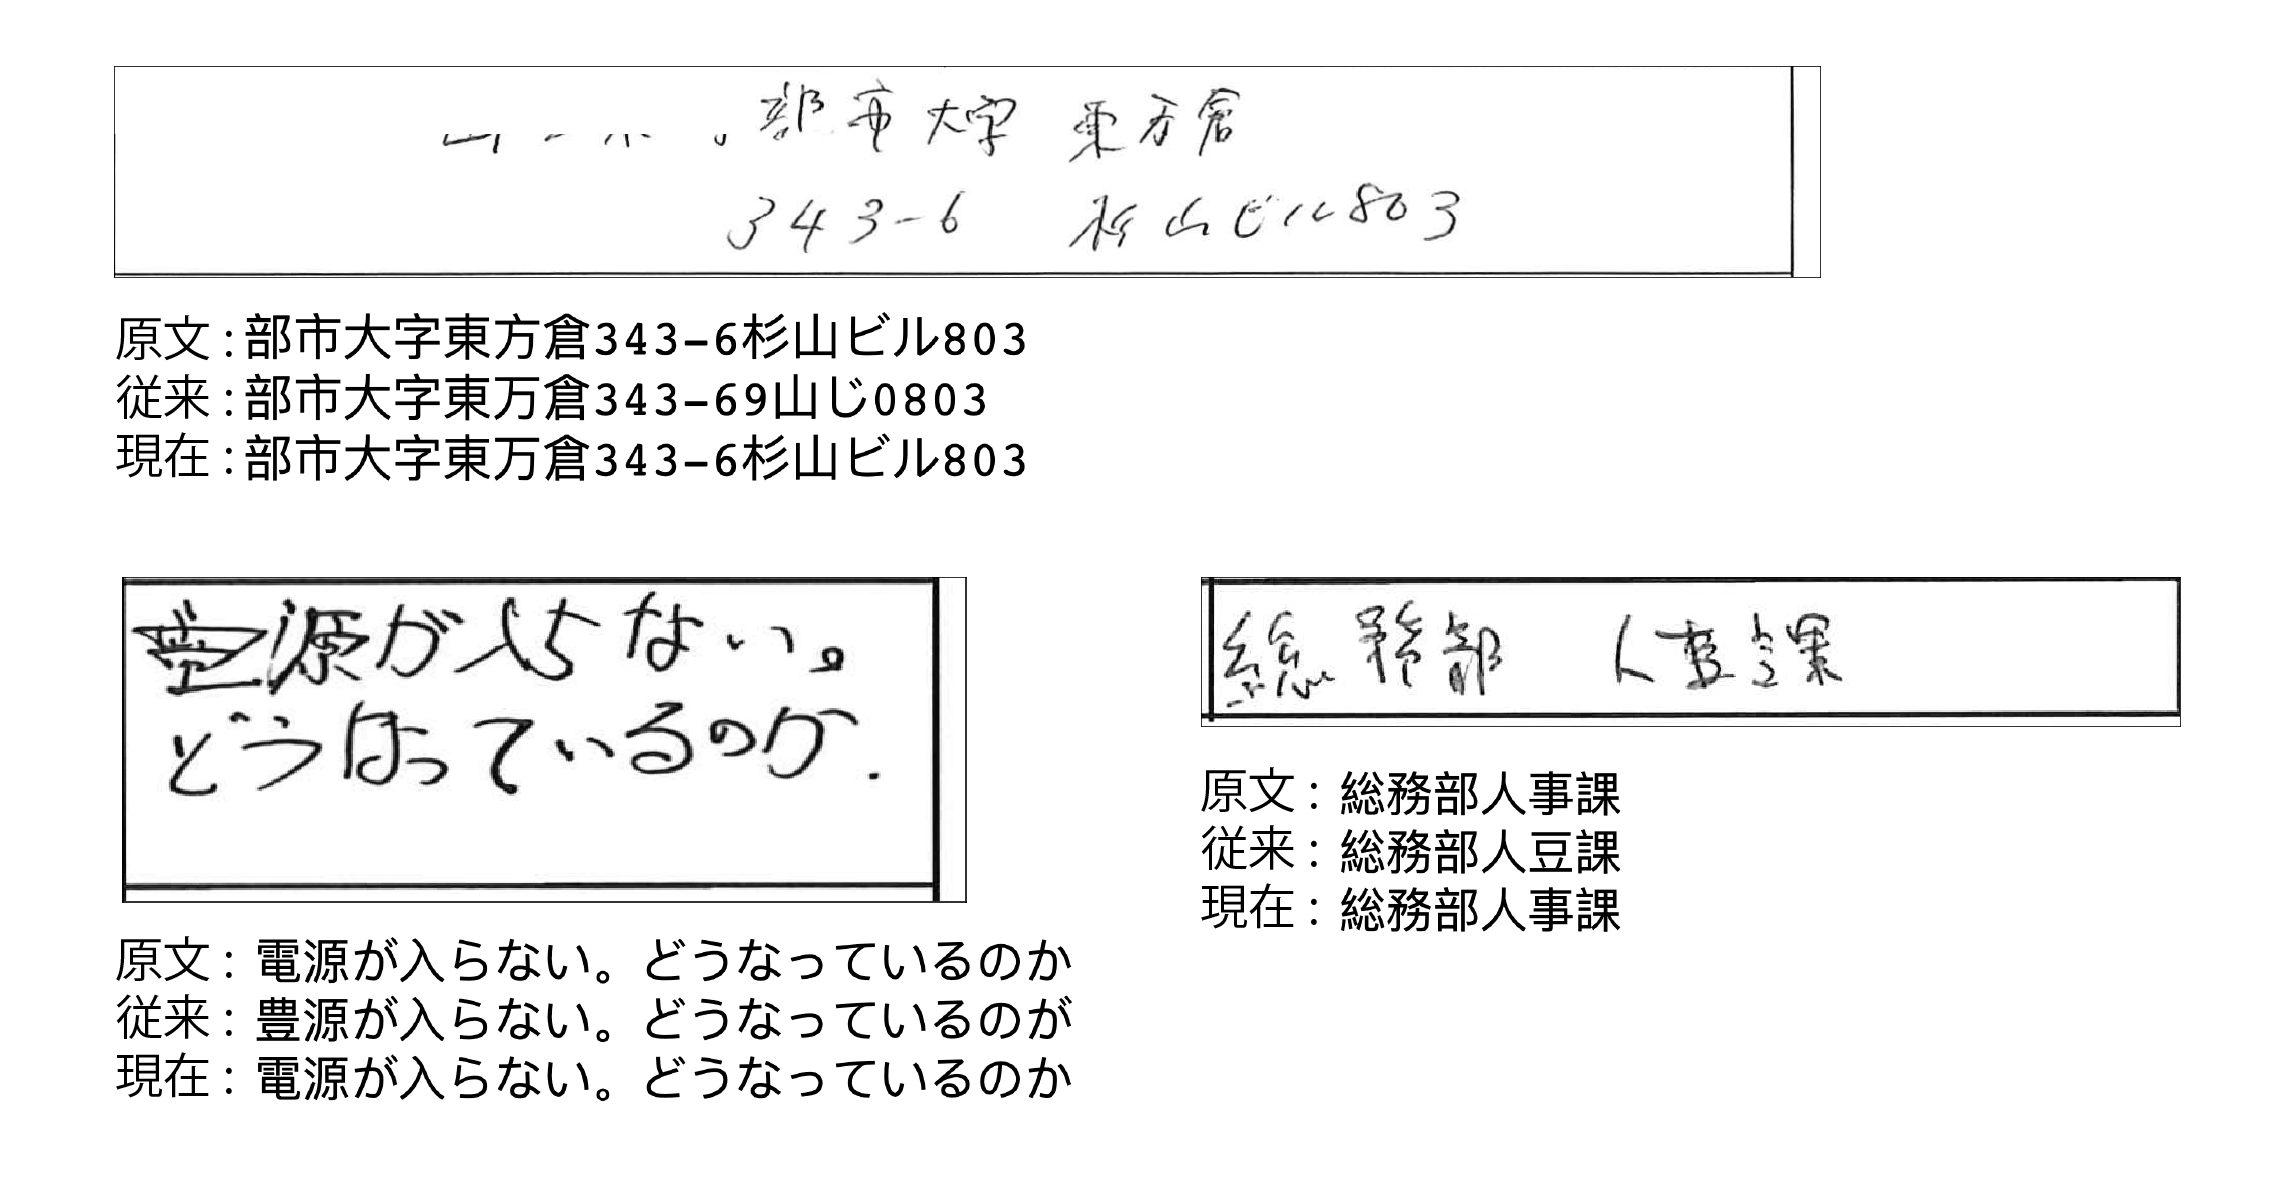 部市大字 東方倉
343-6 杉山ビル803
原文:部市大字東方倉343-6杉山ビル803
従来:部市大字東万倉343-69山じ0803
現在:部市大字東万倉343-6杉山ビル803
電源が入らない。
どうなっているのか.
原文：電源が入らない。どうなっているのか
従来：豊源が入らない。どうなっているのが
現在：電源が入らない。どうなっているのか
総務部 人事課
原文：総務部人事課
従来：総務部人豆課
現在：総務部人事課